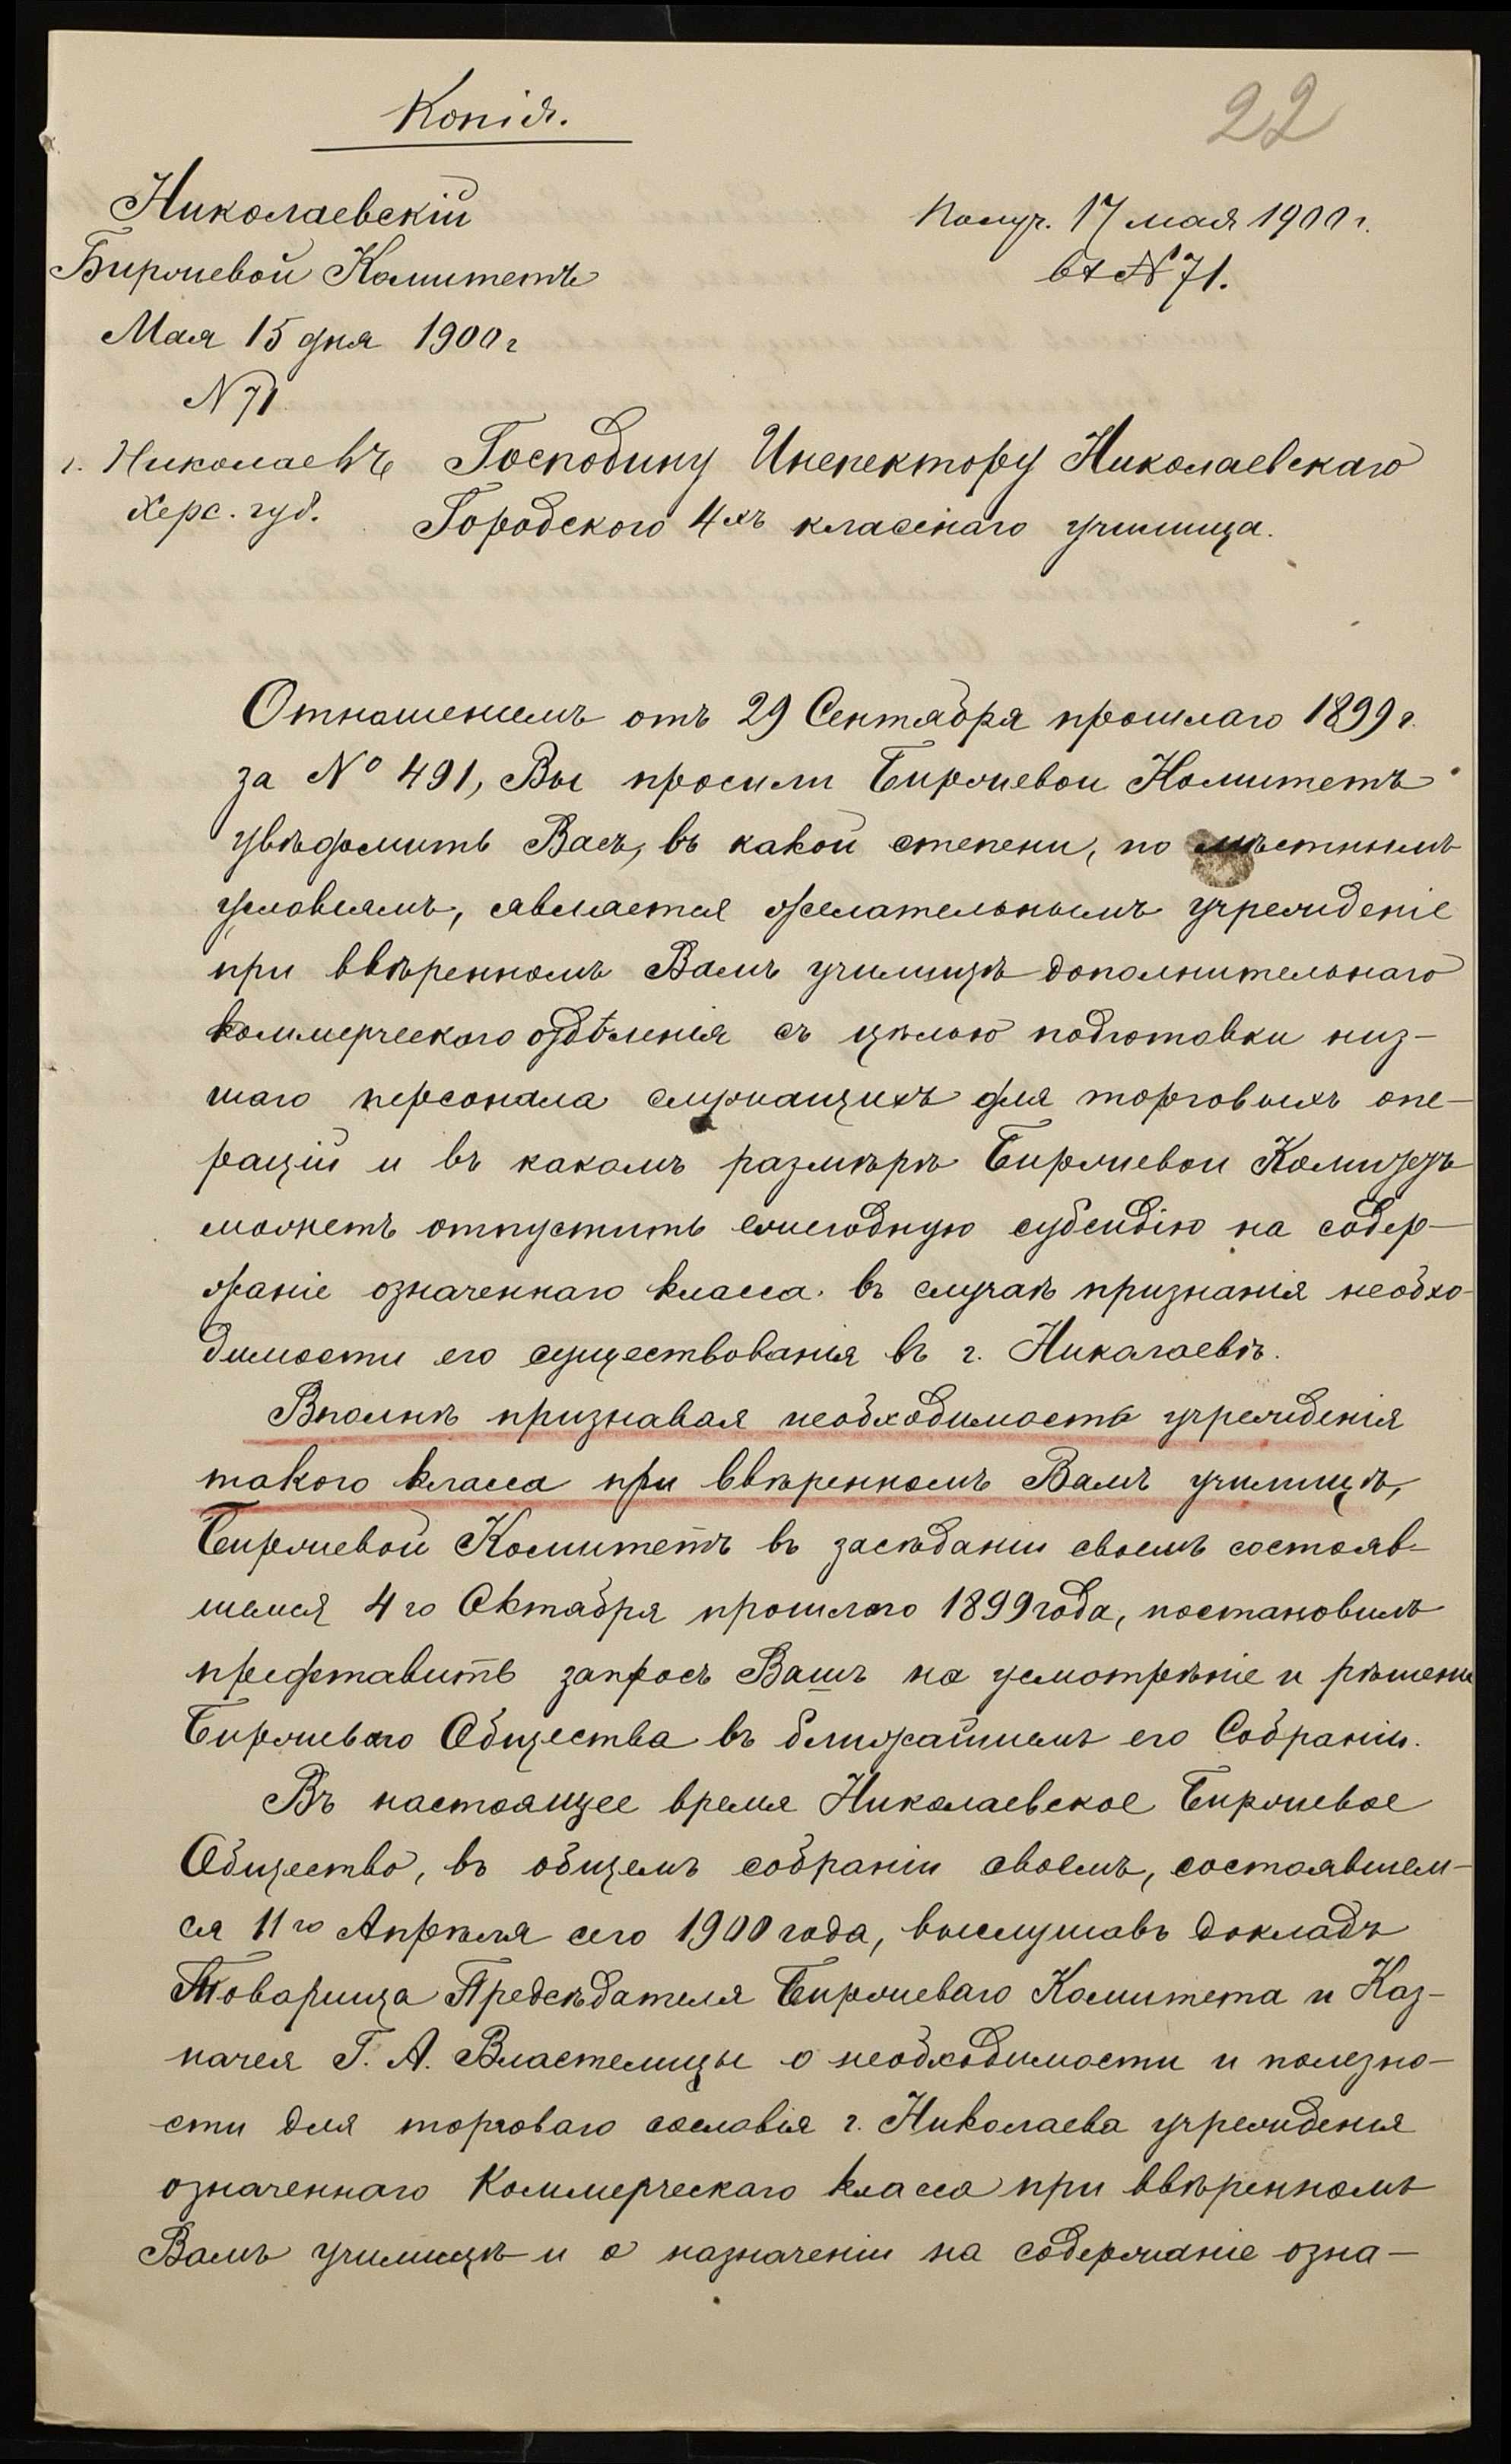 Копія.
22
Николаевскій
Биржевой Комитетъ
Мая 15 дня 1900 г
N 71
г. Николаевъ
Херс. губ.
Получ. 17 мая 1900 г.
вх N 71.
Господину Инспектору Николаевскаго
Городского 4хъ класснаго училища.
Отношеніемъ отъ 29 Сентября прошлаго 1899 г.
за № 491, Вы просили Биржевой Комитетъ
увѣдомить Васъ, въ какой степени, по мѣстнымъ
условіямъ, является желательнымъ учрежденіе
при ввѣренномъ Вамъ училищѣ дополнительнаго
коммерческаго отдѣленія съ цѣлью подготовки низ-
шаго персонала служащихъ для торговыхъ опе-
рацій и въ какомъ размѣрѣ Биржевой Комитетъ
можетъ отпустить ежегодную субсидію на содер-
жаніе означеннаго класса въ случаѣ признанія необхо-
димости его существованія въ г. Николаевѣ.
Вполнѣ признавая необходимость учрежденія
такого класса при ввѣренномъ Вамъ училищѣ,
Биржевой Комитетъ въ засѣданіи своемъ состояв-
шемся 4го Октября прошлаго 1899 года, постановилъ
представить запросъ Вашъ на усмотрѣніе и рѣшеніе
Биржеваго Общества въ ближайшемъ его Собраніи.
Въ настоящее время Николаевское Биржевое
Общество, въ общемъ собраніи своемъ, состоявшем-
ся 11го Апрѣля сего 1900 года, выслушавъ докладъ
Товарища Предсѣдателя Биржеваго Комитета и Каз-
начея Г. А. Властелицы о необходимости и полезно-
сти для торговаго сословія г. Николаева учрежденія
означеннаго Коммерческаго класса при ввѣренномъ
Вамъ училищѣ и о назначеніи на содержаніе озна-